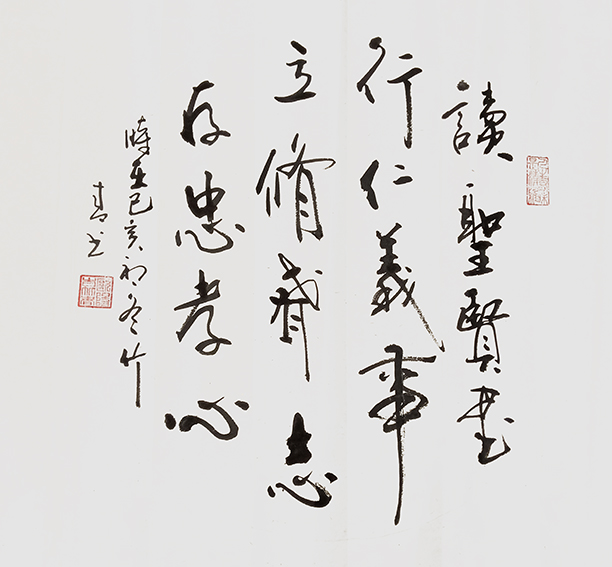 讀聖賢書
行仁義事
立修齊志
存忠孝心
時在己亥初冬竹
青書